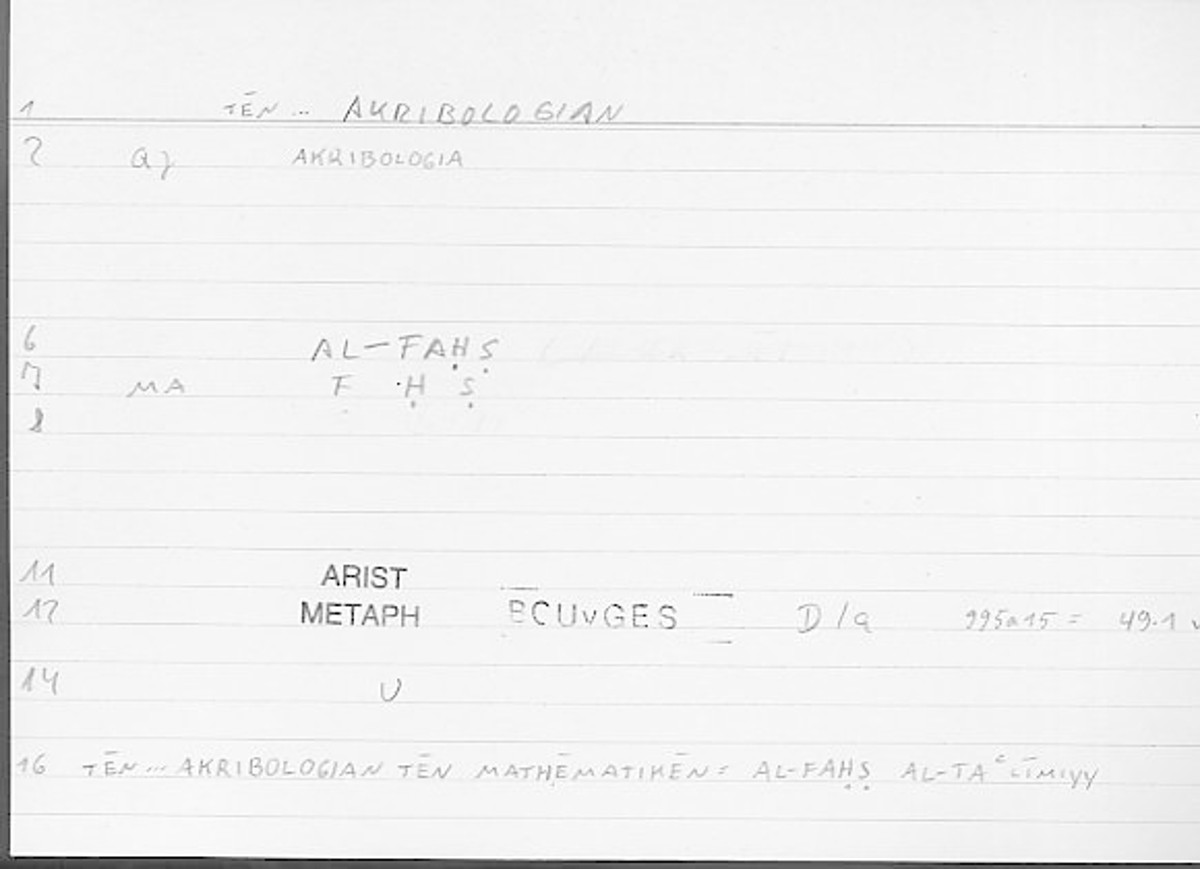 1 TĒN ... AKRIBOLOGIAN
2 aj AKRIBOLOGIA
6 AL-FAḤṢ
7 MA F Ḥ Ṣ
8
11 ARIST
12 METAPH ECUvGES D/a 995a15 = 49.1
14 U
16 TĒN ... AKRIBOLOGIAN TĒN MATHĒMATIKĒN = AL-FAḤṢ AL-TAʿLĪMIYY